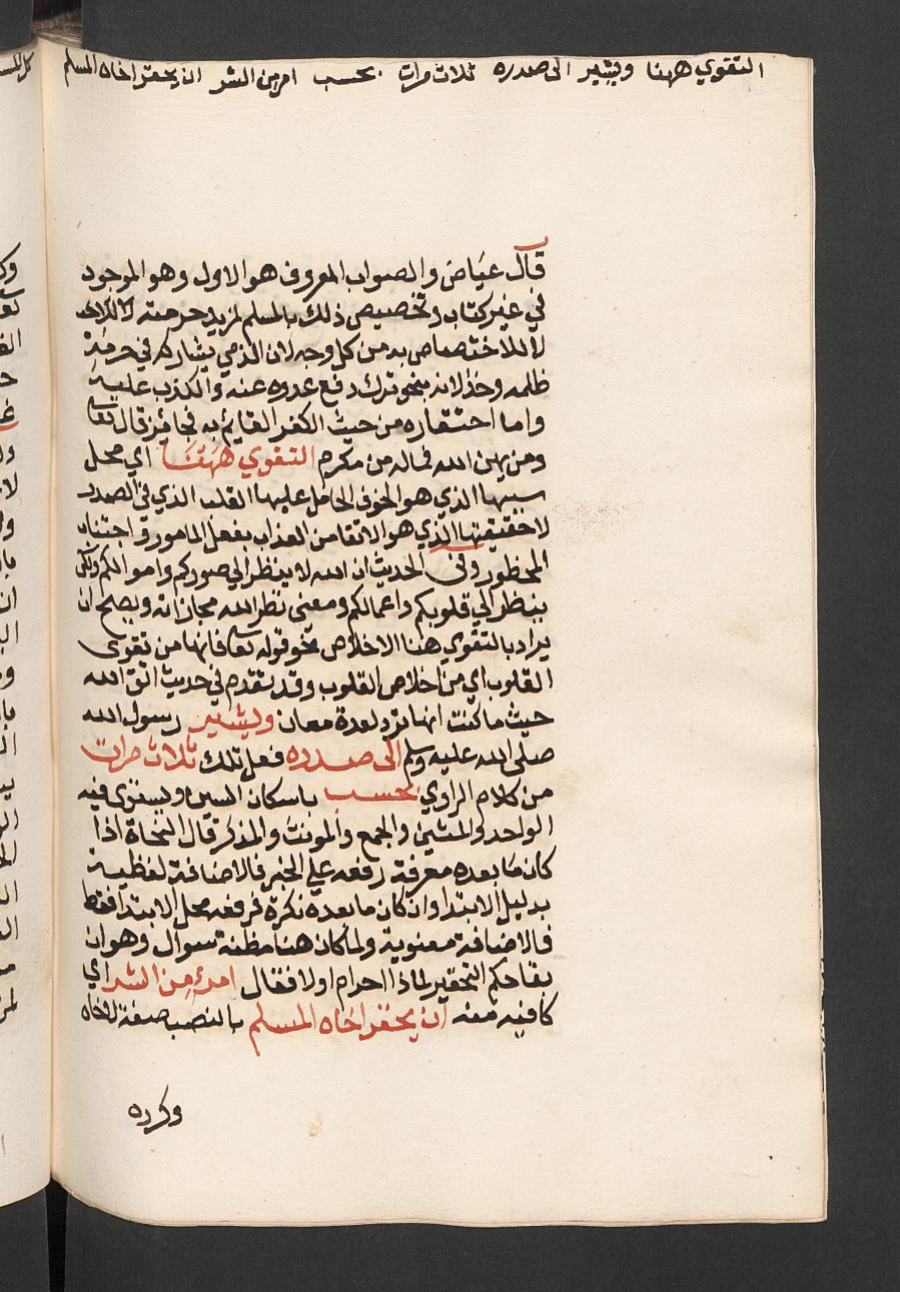 التقوي ههنا ويشير الى صدره ثلاث مرات بحسب امرئ من الشر ان يحقر اخاه المسلم
قال عياض والصواب المعروف هو الاول وهو الموجود
في غير كتاب وتخصيص ذلك بالمسلم لمزيد حرمته
لا للاختصاص به من كل وجه لان الذمي يشاركه في حرمة
ظلمه وخذلانه بنحو ترك دفع عدوه عنه والكذب عليه
واما احتقاره من حيث الكفر القايم به فجائز قال تعالى
ومن يهن الله فما له من مكرم التقوي ههنا اي محل
سببها الذي هو الخوف الحامل عليها القلب الذي في الصدر
لا حقيقتها الذي هو الاتقا من العذاب بفعل المامور واجتناب
المحظور وفي الحديث ان الله لا ينظر الي صوركم واموالكم ولكن
ينظر الي قلوبكم واعمالكم ومعنى نظر الله مجازاته ويصح ان
يراد بالتقوي هنا الاخلاص نحو قوله تعا فانها من تقوى
القلوب اي من اخلاص القلوب وقد تقدم في حديث اتق الله
حيث ما كنت انها ترد لعدة معان ويشير رسول الله
صلى الله عليه وسلم الى صدره فعل تلك ثلاث مرات
من كلام الراوي بحسب باسكان السين ويستوى فيه
الواحد والمثني والجمع والمونث والمذكر قال النحاة اذا
كان ما بعده معرفة رفعه علي الخبر فالاضافة لفظية
بدليل الابتدا وان كان ما بعده نكرة فرفعه محل الابتدا فقط
فالاضافة معنوية ولما كان هنا مظنة سوال وهو ان
يقا حكم التحقير لماذا احرام اولا فقال امرئ من الشر اي
كافيه منه ان يحقر اخاه المسلم بالنصب صفة لاخاه
وكرده